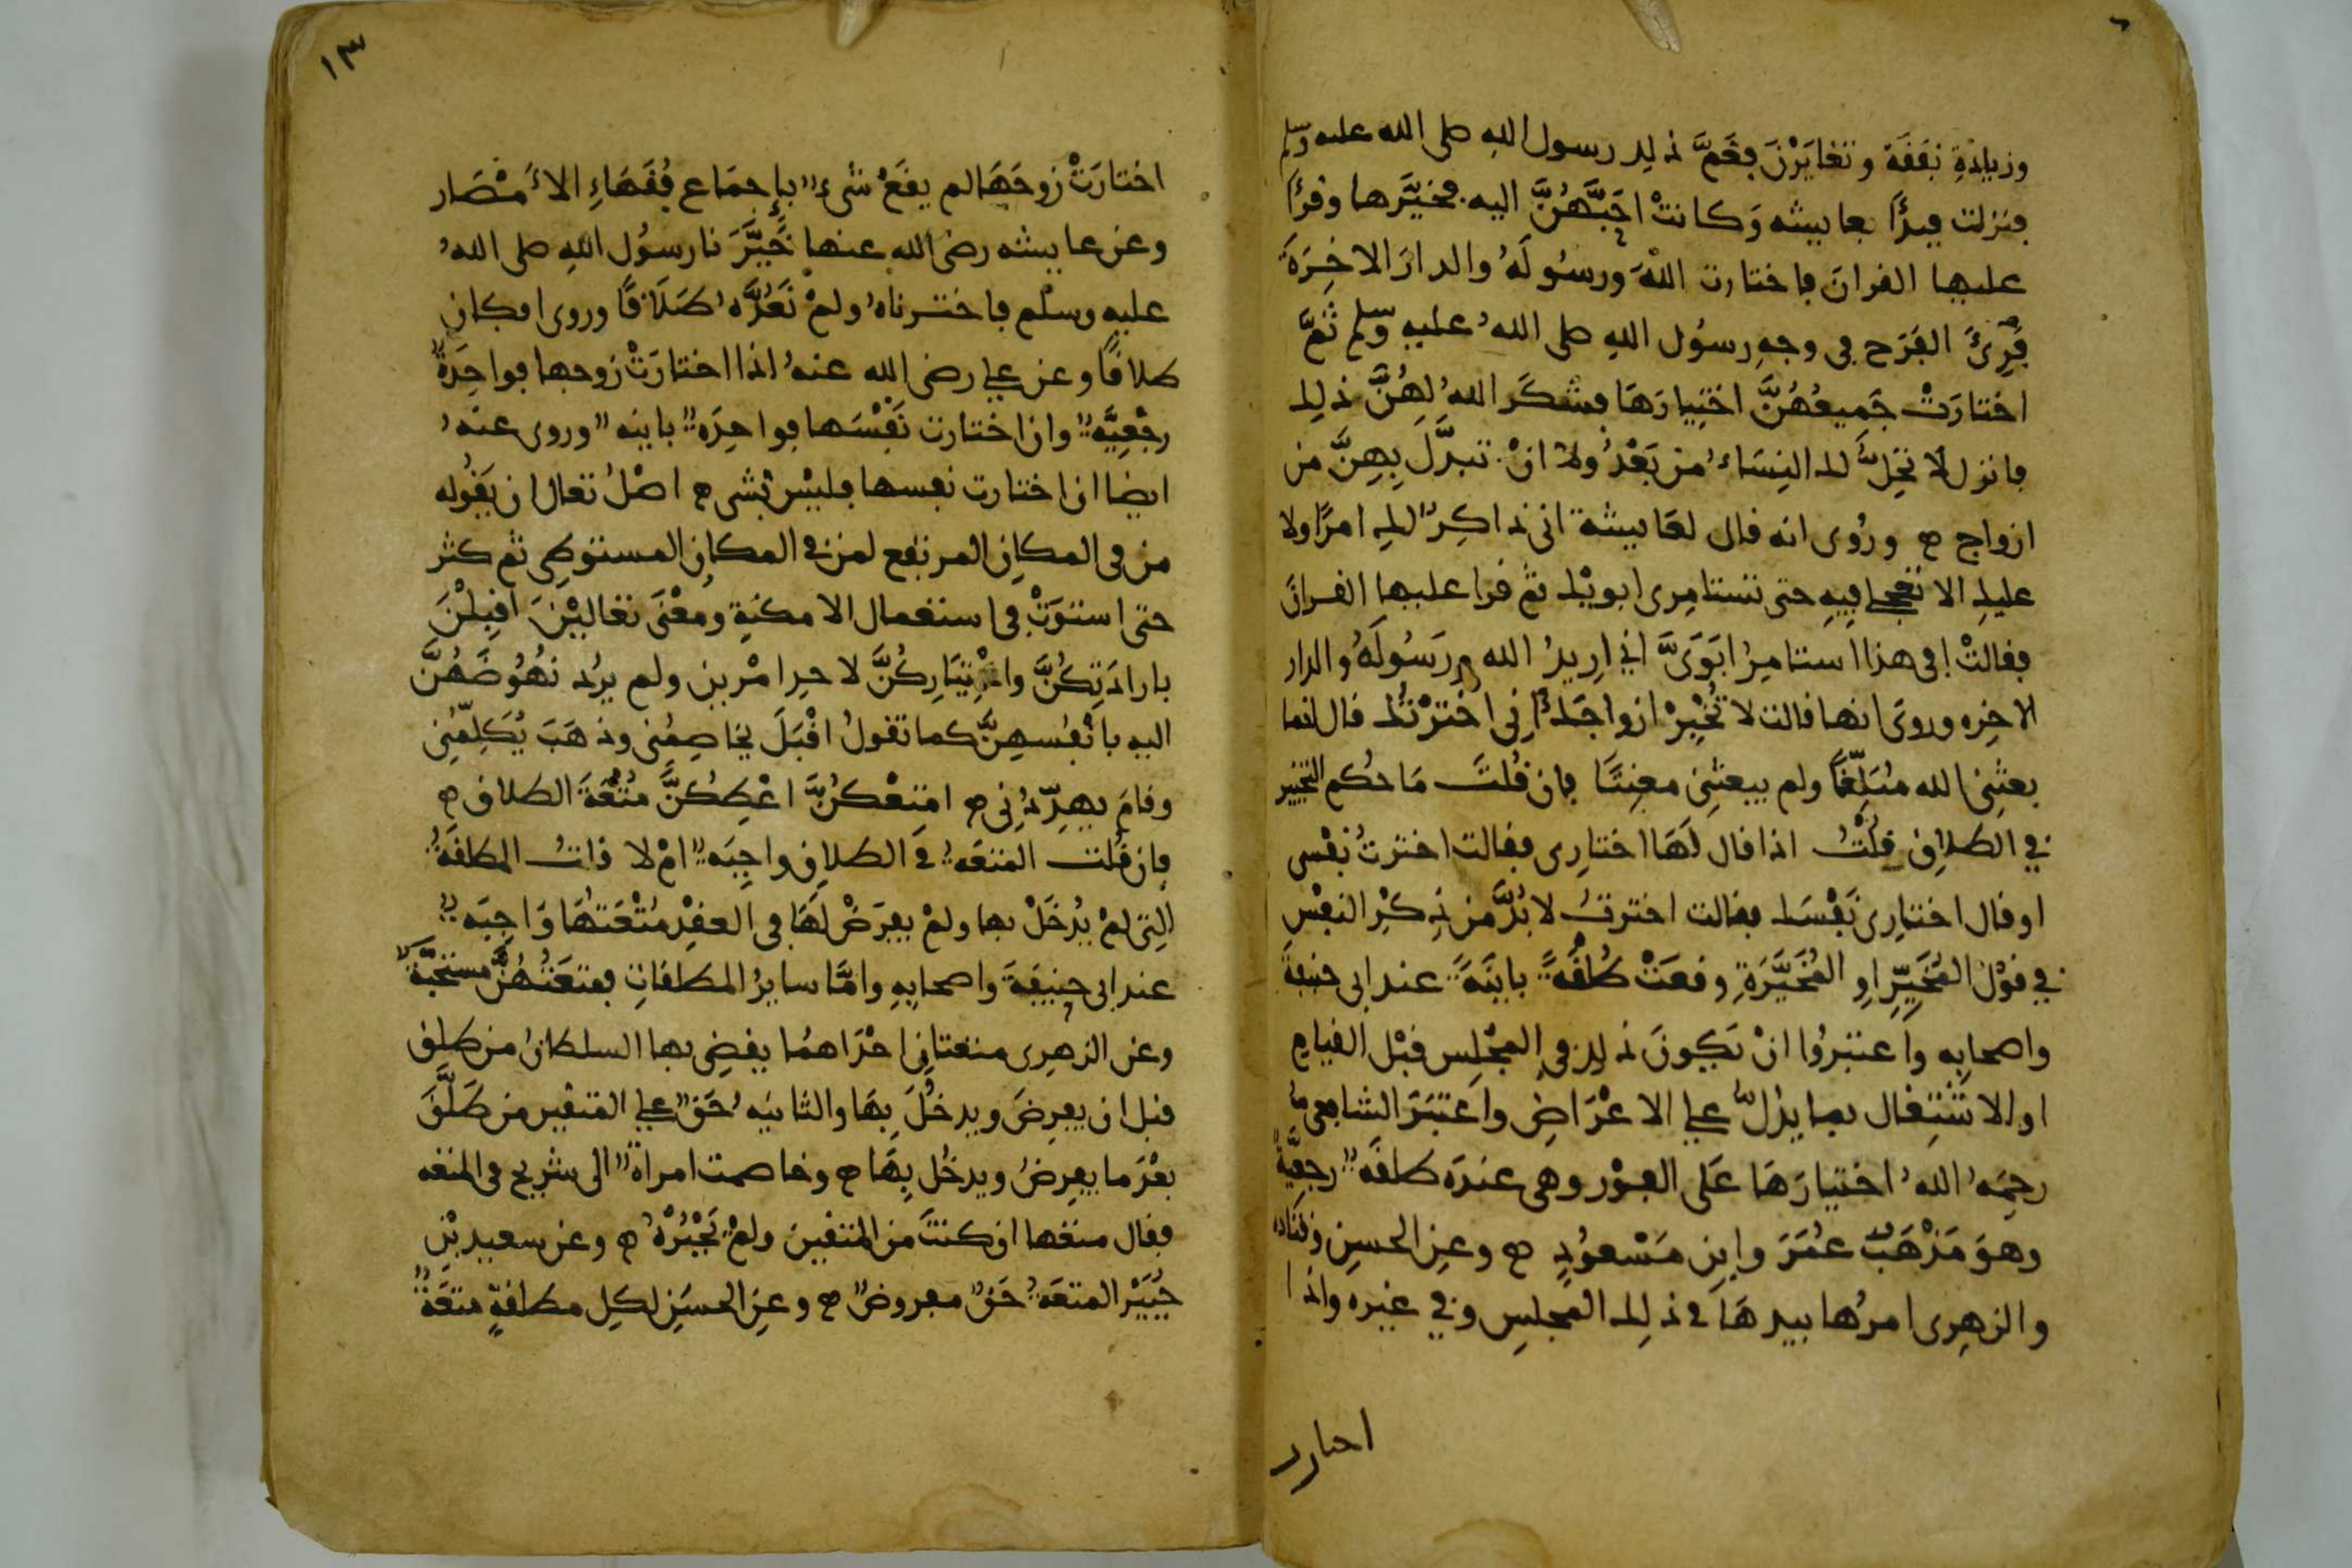 وزيادةِ نفقة وتغايَرْنَ فغَمَّ ذلك رسول الله صلى الله عليه وسلم
فنزلت فبدَأ بعايشه وَكانتْ احَبَّهُنَّ اليه فخيَّرها وقرأ
عليها القران فاختارت اللهَ ورسُولَهُ والدارَ الاخِرَةَ
فَرِئَ الفَرَح في وجهِ رسُول اللهِ صلى اللهُ عليهِ وسلم ثمَّ
اختارَتْ جَميعُهُنَّ اختِيارَهَا فشكَر اللهُ لهُنَّ ذلك
فانزل لا تحِلُّ لك النِسَاءُ من بَعْدُ ولا انْ تبدَّلَ بِهِنَّ من
ازواج ورُوى انه قال لعَايشة انى ذاكِرٌ لكِ امرًا ولا
عليكِ الا تعجلى فيهِ حتى تستامِرى ابويْك ثم قرا عليها القرانَ
فقالتْ افى هذا استامِرُ ابَوَىَّ انى اريدُ الله ورَسُولَهُ والدار
الاخِره وروىَ انها قالت لا تُخْبِرْ ازواجَكَ انِى اخْتَرْتُك قال انما
بعثَنِى الله مُبَلِّغًا ولم يبعثنِى معنِتًا فان قُلتَ مَا حُكم التخيير
في الطلاقِ قلْتُ اذا قال لَهَا اختارِى فقالت اخترتُ نفْسى
او قال اختارِى نَفْسَك فقالت اخترتُ لا بُدَّ من ذِكْرِ النفْسِ
في قوْل المُخَيِّرِ اوِ المُخَيَّرَةِ وقعَتْ طلْقَةً باينَةً عند ابى حنيفة
واصحابِه واعتبَرُوا انْ يَكونَ ذلك في المجْلِسِ قبْل القيام
او الاشْتِغال بما يدُلُّ على الاعْرَاضِ واعتَبَرَ الشافعى
رحِمَهُ اللهُ اختيارَهَا عَلى الفوْر وهى عندَه طلقةٌ رجعِيَّةٌ
وهوَ مَذْهَبُ عُمَرَ وابنِ مَسْعُودٍ وعنِ الحسنِ وقتادة
والزهرِى امرُها بيدِهَا في ذلِك المجلِسِ وفي غيره واذا
احتارت
١٣
اختارَتْ زوجَهَا لم يقَعْ شىءٌ بإجمَاع فُقَهَاءِ الأمْصَار
وعن عايشه رضى الله عنها خَيَّرَنا رسُول اللهِ صلى اللهُ
عليهِ وسلم فاخترناهُ ولمْ نَعُدَّهُ طَلَاقًا وروى افكان
طلاقًا وعن على رضى الله عنهُ اذا اختارَتْ زوجها فواحِدَةٌ
رجْعِيَّةٌ وان اختارت نَفْسَها فواحِدَةٌ باينه وروى عنهُ
ايضا ان اختارت نفسها فليْسَ بشىء اصْلُ تعال ان يَقُوله
من في المكانِ المرتفع لمن في المكانِ المستوطِى ثم كثر
حتى استوَتْ فى استعمال الامكنَةِ ومعْنَى تعاليْنَ اقبِلْنَ
بارادَتِكُنَّ واخْتِيَارِكُنَّ لاحدِ امْرين ولم يرُد نهُوضَهُنَّ
اليه بانْفُسهِنَّ كما تقولُ اقْبَلَ يخاصِمُنى وذهَبَ يُكَلِّمُنى
وقامَ يهدِّدُنِى امتعْكُنَّ اعْطِكُنَّ مُتْعَةَ الطلاق
فان قُلت المتعَةُ في الطلاقِ واجِبَةٌ امْ لا قلتُ المطلقَةُ
التِى لمْ يُدخَلْ بها ولمْ يفرَضْ لَهَا فى العقْدِ مُتْعَتُهَا وَاجِبَةٌ
عند ابى حنيفَةَ واصحابِهِ وامَّا سايرُ المطلقاتِ فمتعَتُهُنَّ مستحَبَّةٌ
وعن الزهرِى متعتانِ احْدَاهمَا يقضِى بها السلطانُ من طلق
قبل ان يفرِضَ ويدخُلَ بِهَا والثانيَه حَقٌّ على المتقين من طَلَّقَ
بعْدَ ما يفرِضُ ويدخُل بِهَا وخاصمت امراةٌ الى شريح فى المتعه
فقال متعها ان كنتَ من المتقين ولمْ يَجْبُرْهُ وعن سعيد بْنِ
جُبَيْر المتعَةُ حَقٌّ مفروضٌ وعنِ الحسَنِ لكِل مطلقةٍ متعَةٌ